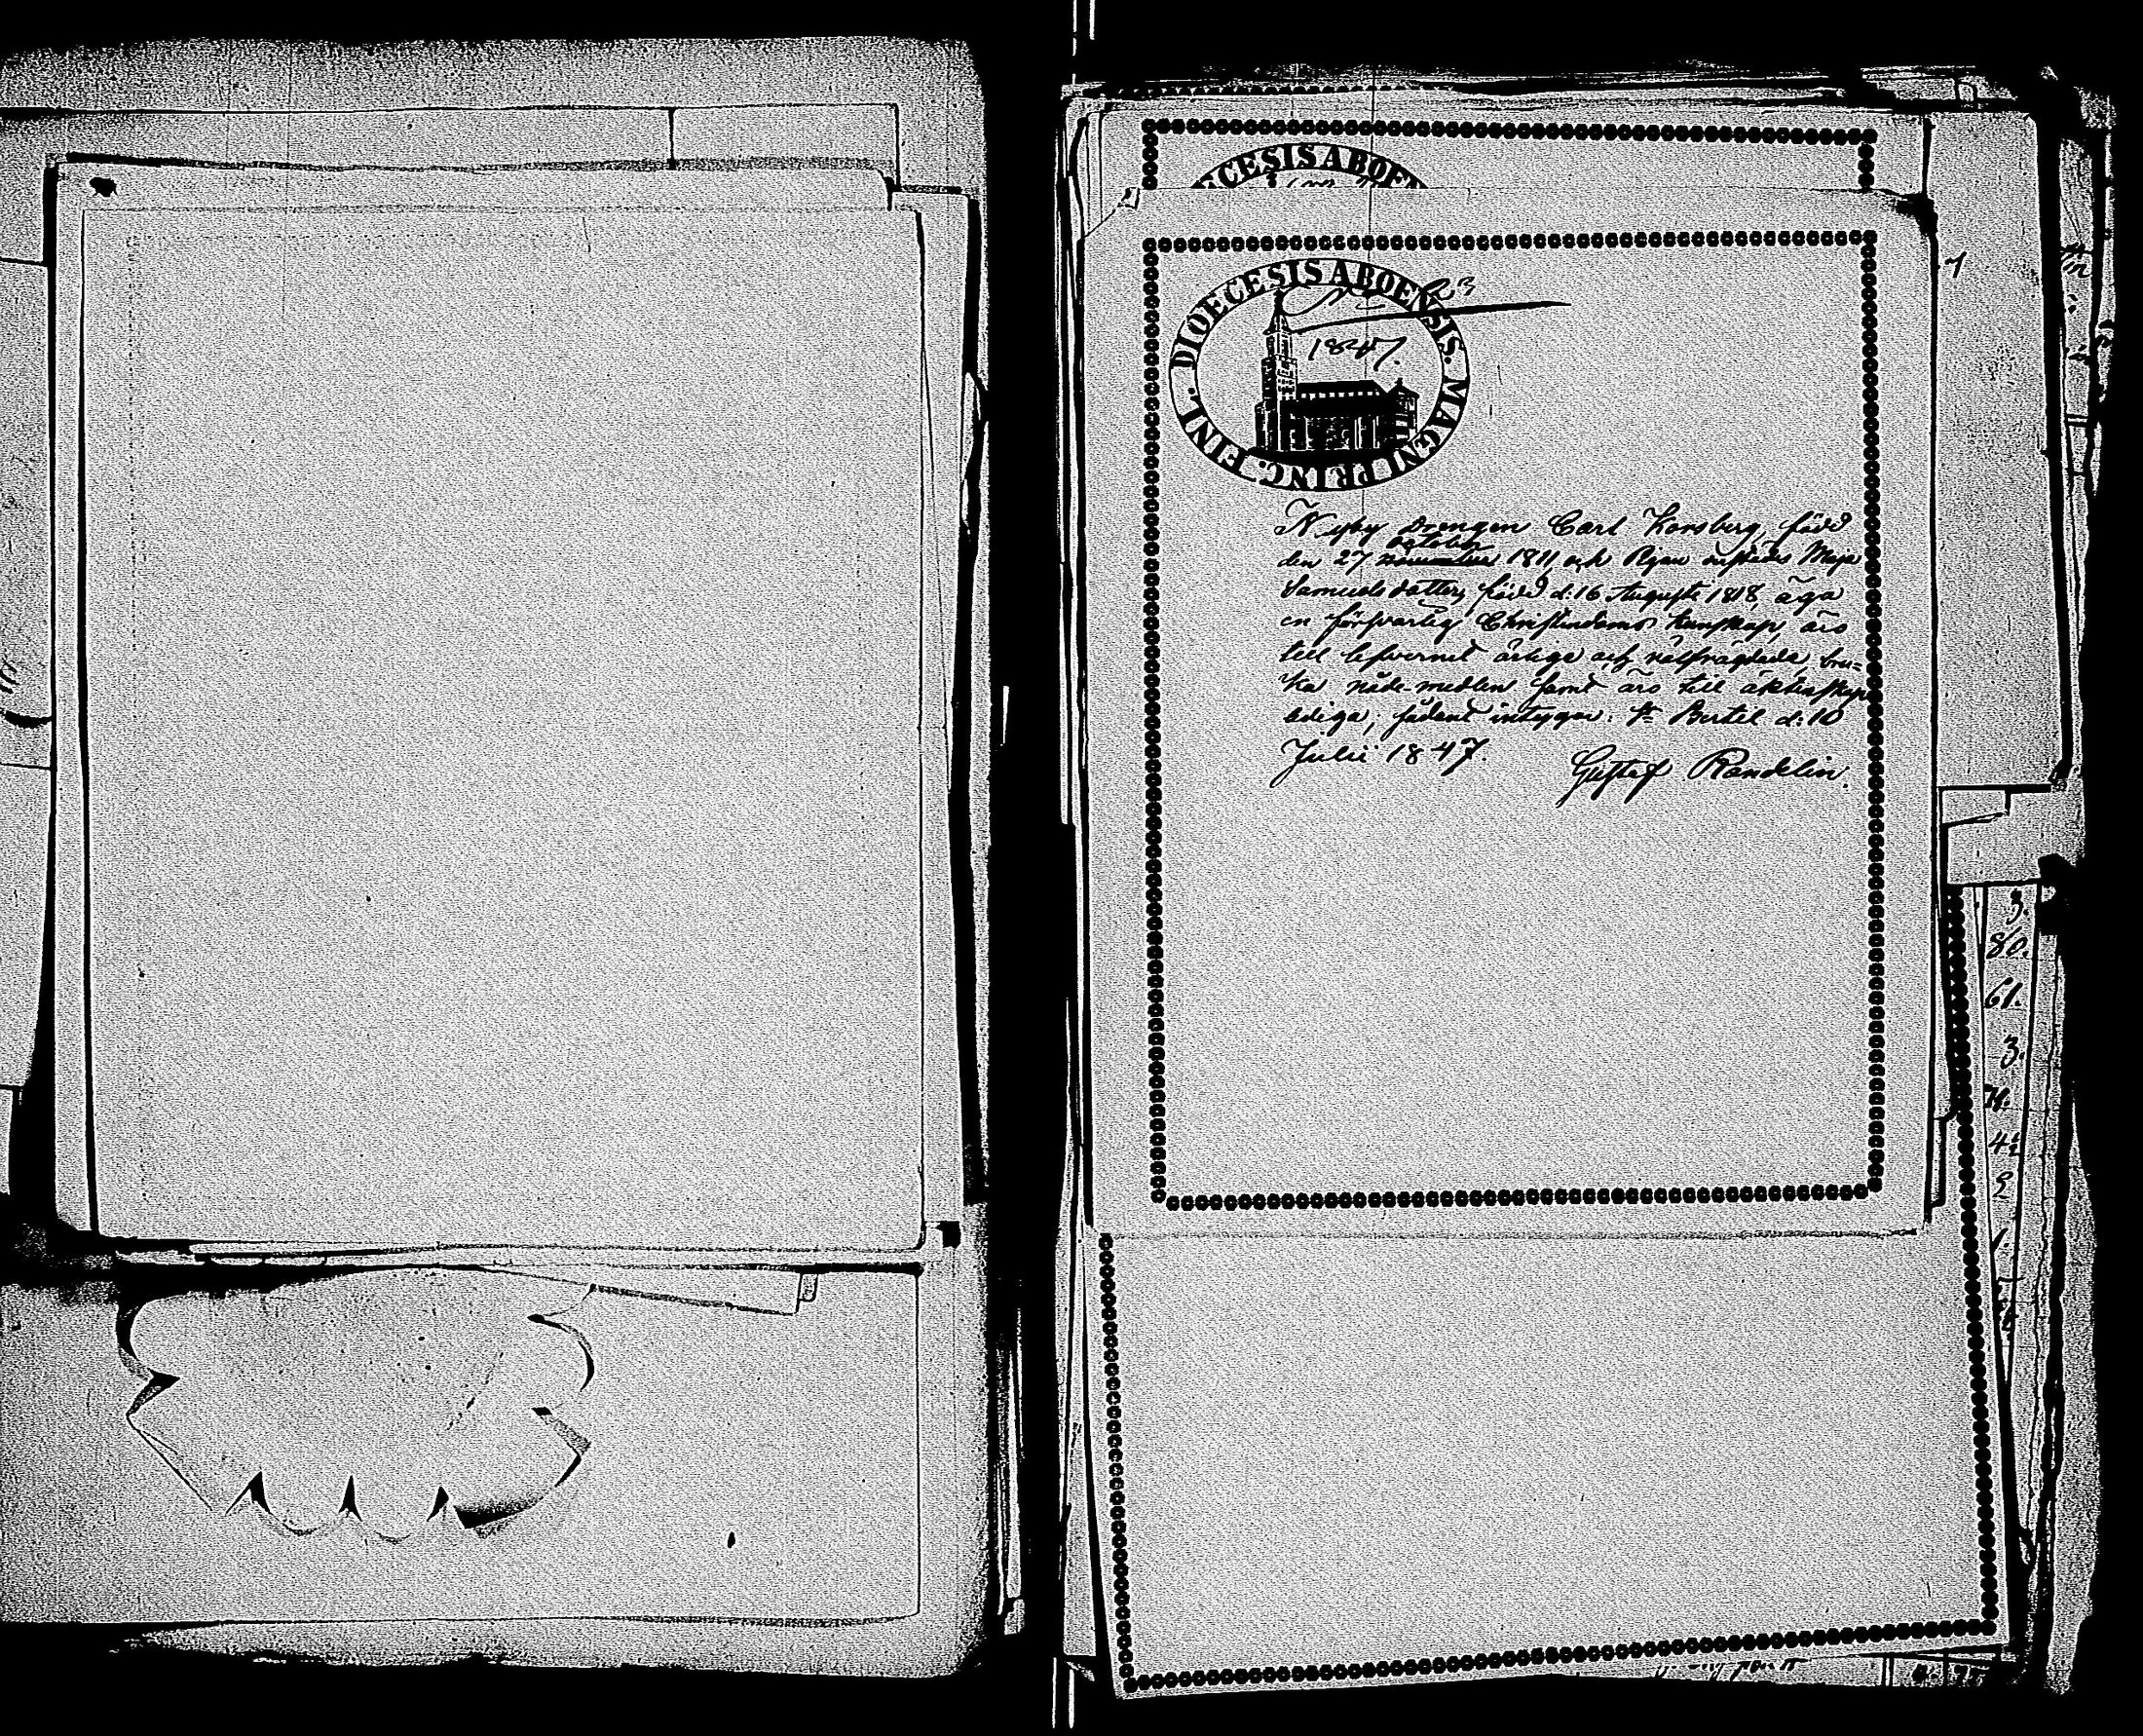 DIOECESIS ABOENSIS. MAGNI PRINC. FINL.
1847.
Nyby Drengen Carl Korsberg, född
October
den 27 november 1811, och Pigan Maja
Samuelsdotter, född d: 16 Augusti 1818, äga
en försvarlig Christendoms kunskap, äro
till lefvernet ärlige och välfrägdade, bru-
ka nåde-medlen samt äro till äktenskap
lediga; sådant intygar. St Bertil d: 10
Julii 1847.
Gustaf Randelin.
3.
80.
61.
3.